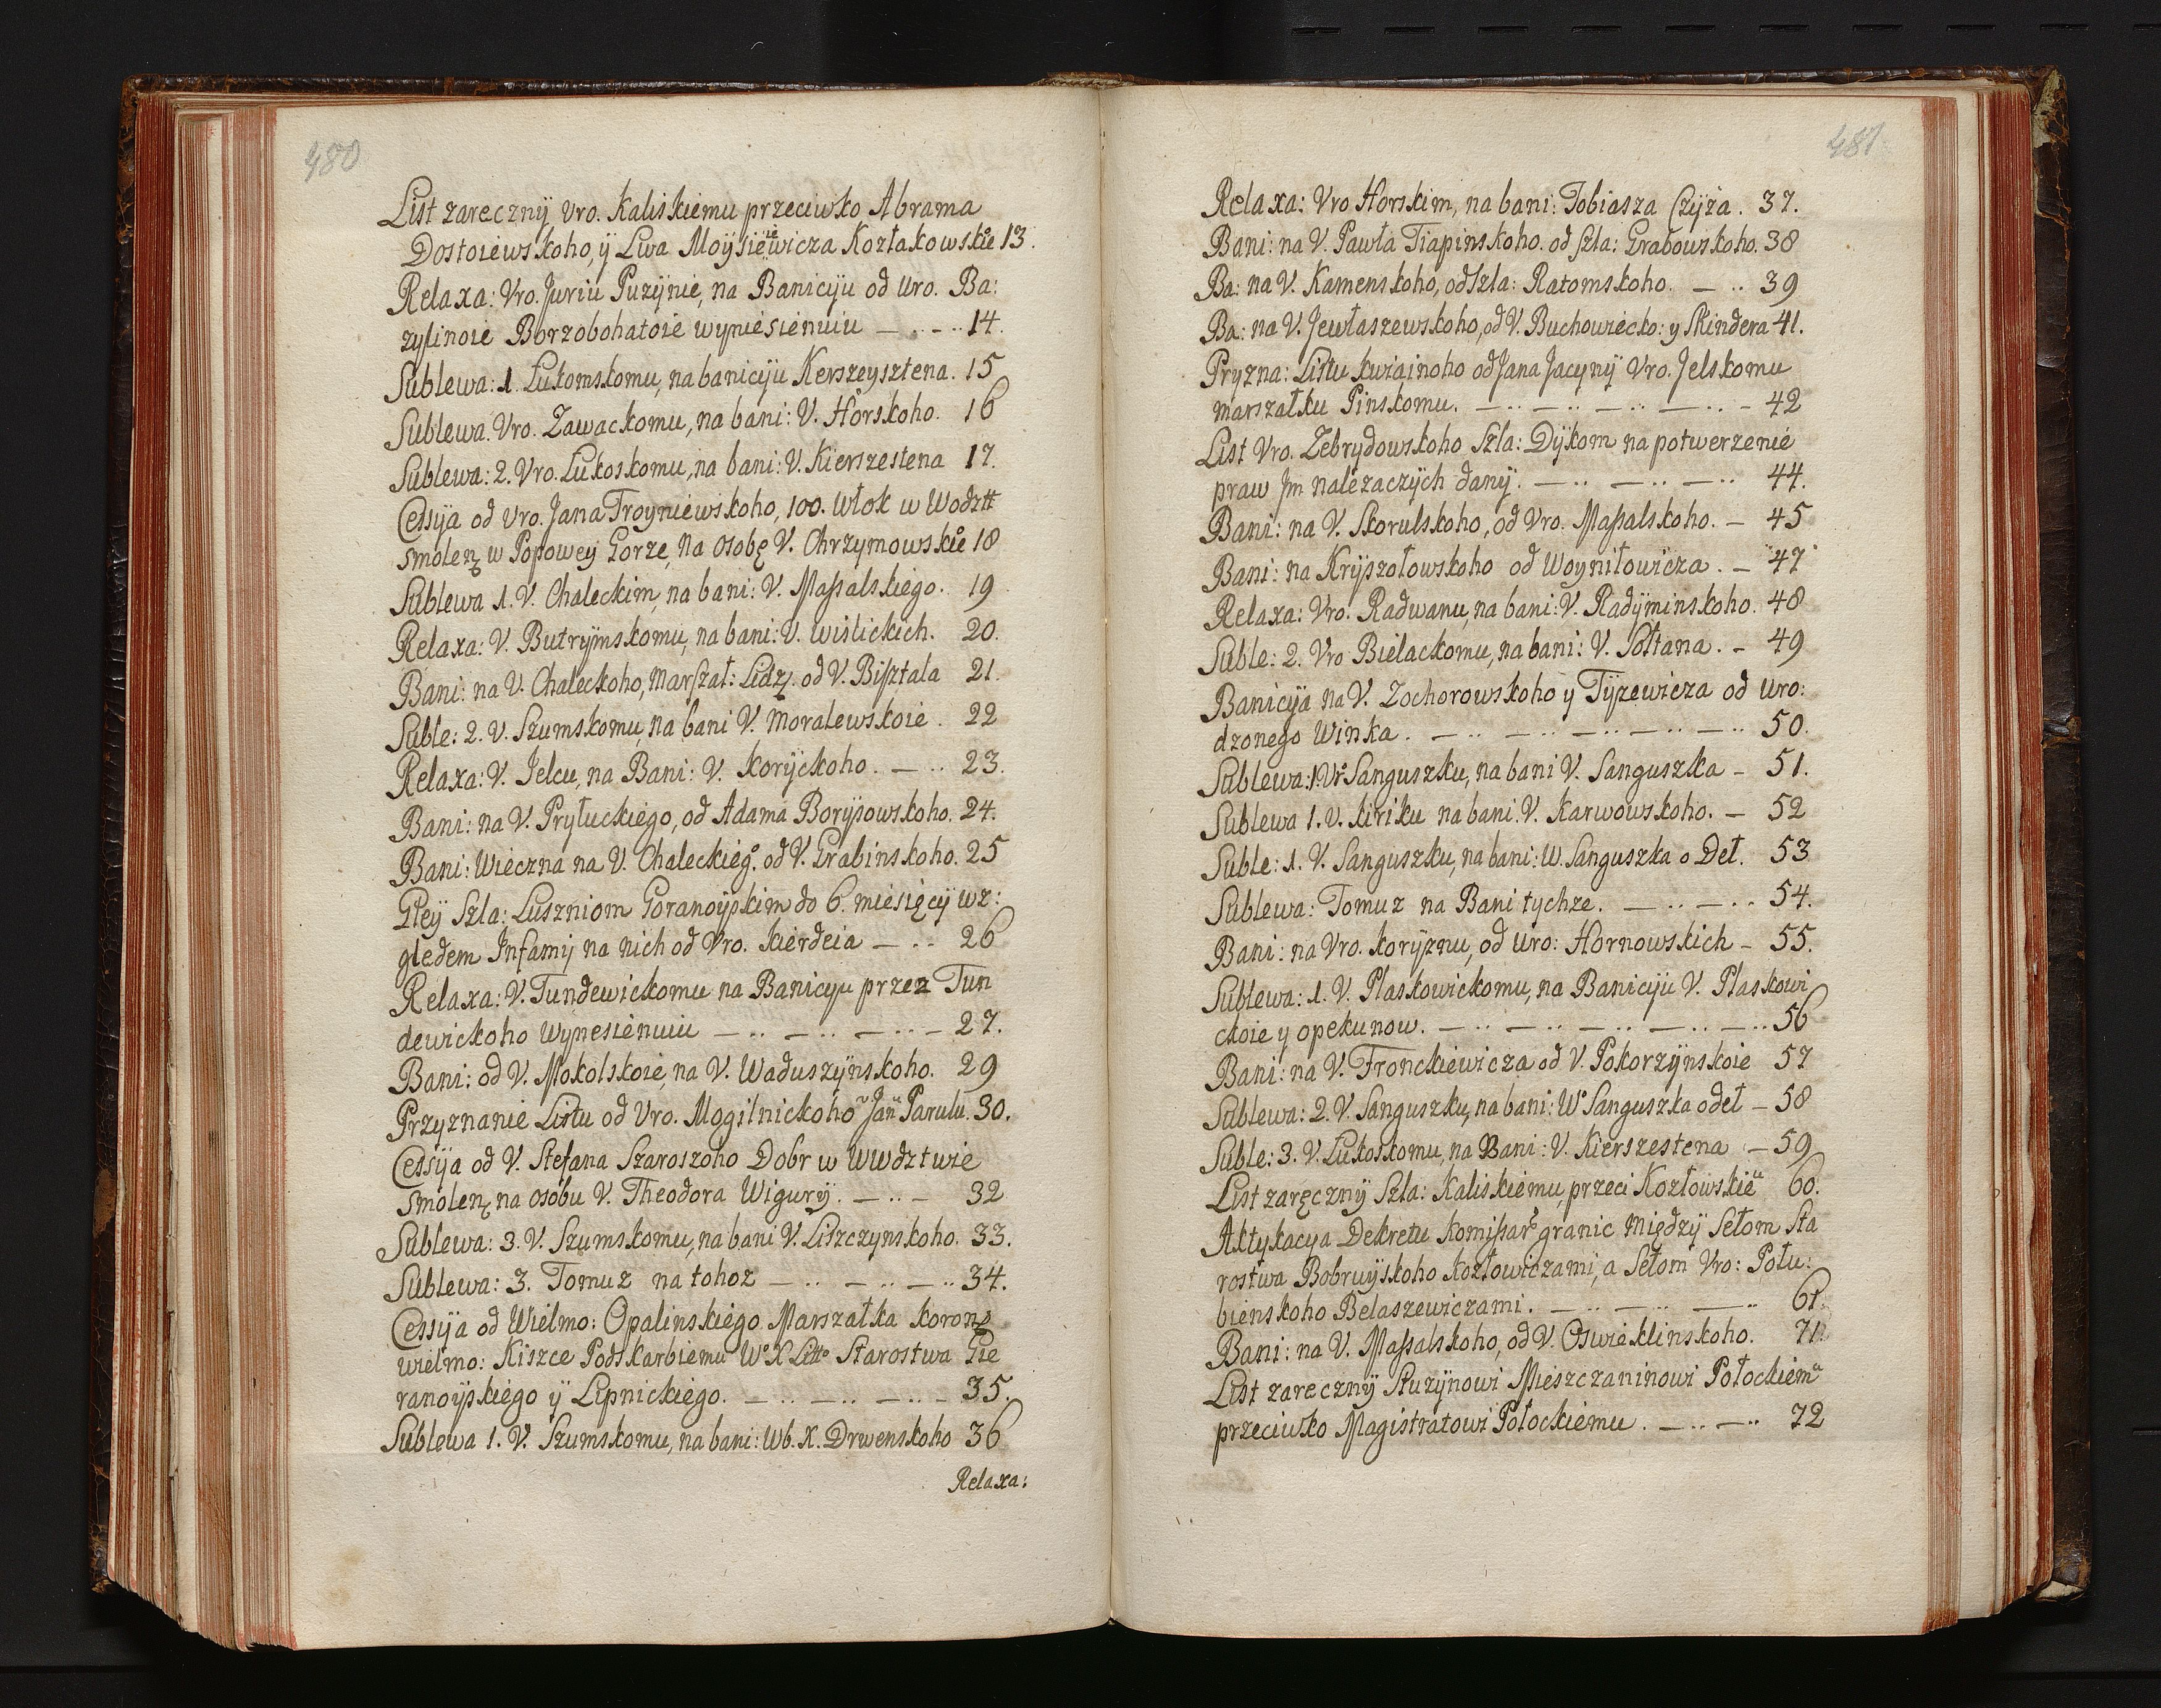 480
List zareczny Vro. Kaliskiemu przeciwko Abrama
Dostoiewskoho, ÿ Lwa Moÿsiiewicza Kozłakowskie 13.
Relaxa: Vro. Juriu Puzÿnie, na Banicÿu od Uro. Ba:
zylinoie Borzobohatoie wyniesienuiu — .. — .. 14.
Sublewa: 1. Lukomskomu, na banicÿu Kerszeysztena. 15
Sublewa. Vro. Zawackomu, na bani: V. Horskoho. 16
Sublewa: 2. Vro. Lukoskomu, na bani: V. Kierszestena 17.
Cessÿa od Vro. Jana Troyniewskoho, 100. Włok w Wodztt
Smolen: w Popowey Gorze, na osobę V. Chrzymowskie 18
Sublewa 1. V. Chaleckim, na bani: V. Massalskiego. 19
Relaxa: V. Butrÿmskomu, na bani: V. wislickich. 20.
Bani: na V. Chaleckoho, Marszał: Lidz. od V. Bisztala 21.
Suble: 2. V. Szumskomu, na bani V. Moralewskoie. 22
Relaxa: V. Jelcu, na Bani: V. Korÿckoho. — .. 23.
Bani: na V. Pryłuckiego, od Adama Borysowskoho. 24.
Bani: Wieczna na V. Chaleckieg° od V. Grabinskoho. 25
Gleÿ Szla: Luszniom Goranoÿskim do 6. miesięcÿ wz:
gledem Infamij na nich od Vro. Kierdeia — .. 26
Relaxa: V. Tundewickomu na Banicyu przez Tun
dewickoho Wynesienuiu — .. — .. — .. — 27.
Bani: od V. Mokolskoie, na V. Waduszÿnskoho. 29
Przyznanie Listu od Vro. Mogilnickoho Jan Parulu. 30.
Cessÿa od V. Stefana Szaroszoho Dobr w Wwdztwie
Smolen: na osobu V. Theodora Wigurÿ. — .. — 32
Sublewa: 3. V. Szumskomu, na bani V. Liszczynskoho. 33.
Sublewa: 3. Tomuz na tohoz — .. — .. — .. 34.
Cessÿa od Wielmo: Opalinskiego Marszałka Koron:
wielmo: Kiszce Podskarbiemu W° X Litt° Starostwa Gie
ranoÿskiego ÿ Lipnickiego. — .. — .. — .. — 35.
Sublewa 1. V. Szumskomu, na bani: Wb. X. Drwenskoho 36
Relaxa:
481
Relaxa: Vro Horskim, na bani: Tobiasza Czÿża. 37.
Bani: na V. Pawła Tiapinskoho. od Szla: Grabowskoho. 38
Ba: na V. Kamenskoho, od Szla: Ratomskoho. — .. 39
Ba: na V. Jewłaszewskoho, od V. Buchowiecko: y Skindera 41.
Pryzna: Listu kwiainoho od Jana Jacynÿ Vro. Jelskomu
marszałku Pinskomu. — .. — .. — .. — .. — 42
List Vro. Zebrydowskoho Szla: Dÿkom na potwerzenie
praw Jm nalezaczÿch danÿ. — .. — .. — .. 44.
Bani: na V. Skorulskoho, od Vro. Massalskoho. — 45
Bani: na Krÿszołowskoho od Woyniłowicza. — 47
Relaxa: Vro. Radwanu, na bani: V. Radÿminskoho. 48
Suble: 2. Vro Bielackomu, na bani: V. Sołtana. — 49
Banicÿa na V. Zochorowskoho ÿ Tÿszewicza od Uro:
dzonego Winka. — .. — .. — .. — .. — .. 50.
Sublewa: 1. Vr° Sanguszku, na bani V. Sanguszka — 51.
Sublewa 1. V. Kiriku na bani. V. Karwowskoho. — 52
Suble: 1. V. Sanguszku, na bani: W. Sanguszka o Det. 53
Sublewa: Tomuz na Bani tychze. — .. — .. 54.
Bani: na Vro. Korÿznu, od Uro: Hornowskich — 55.
Sublewa: 1. V. Plaskowickomu, na Banicÿu V. Plaskowi
ckoie y opekunow. — .. — .. — .. — .. — .. 56
Bani: na V. Fronckiewicza od V. Pokorzÿnskoie 57
Sublewa: 2. V. Sanguszku, na bani: W° Sanguszka o det — 58
Suble: 3. V. Lukoskomu, na Bani: V. Kierszestena — 59
List zaręcznÿ Szla: Kaliskiemu przeci Kozłowskieu 60.
Aktykacya Dekretu Komissar° granic Międzÿ Sełom Sta
rostwa Bobruÿskoho Kozłowiczami, a Sełom Vro: Połu:
bienskoho Belaszewiczami. — .. — .. — .. 61.
Bani: na V. Massalskoho, od V. Oswieklinskoho. 71.
List zarecznÿ Słuzÿnowi Mieszczaninowi Połockiemu
przeciwko Magistratowi Połockiemu. — .. — .. 72